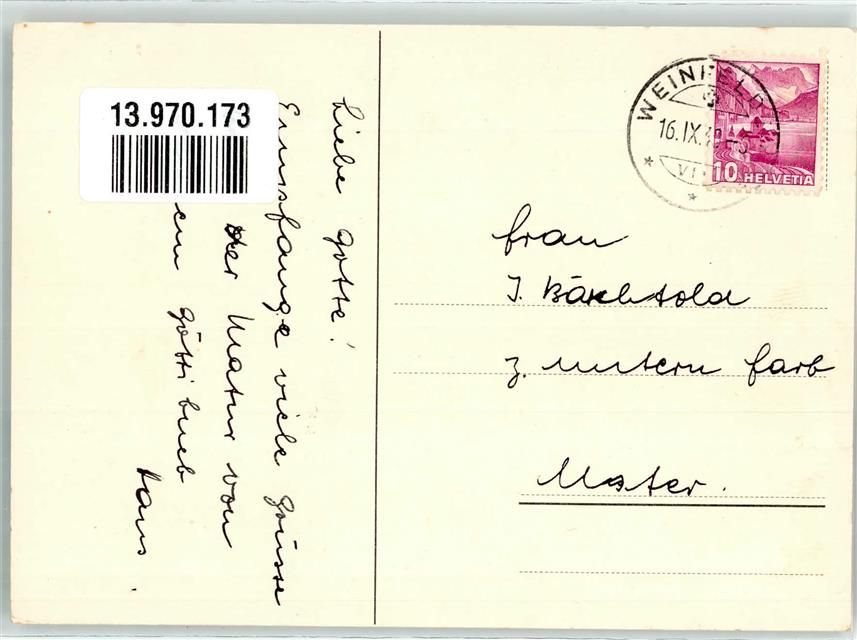 13.970.173
Liebe Gotte!
Empfange viele Grüsse
der Matur von
em Göttibueb
Hans.
WEINFELD
16.IX.
VI
10 HELVETIA
Frau
J. Bächtold
z. untern Farb